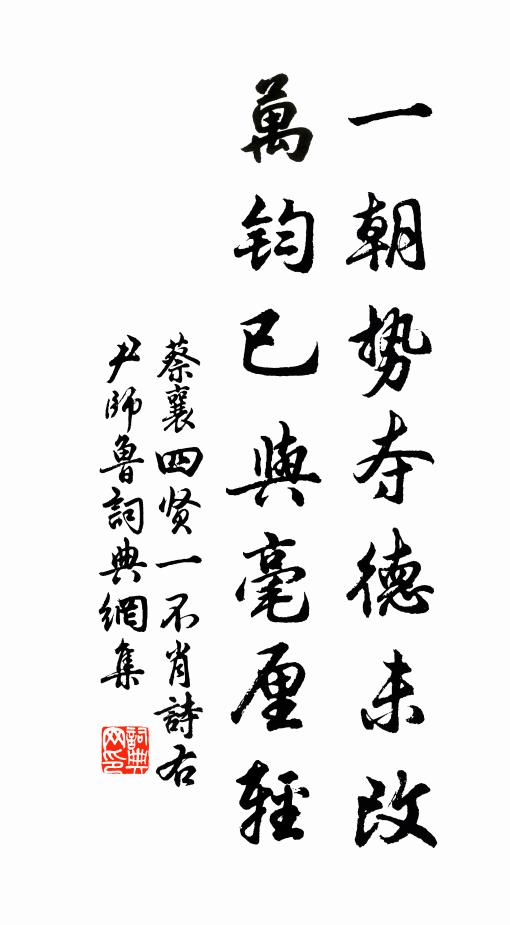 一朝势夺德未改
萬钧已與毫厘輕
蔡襄四贤一不肖詩右
尹師魯詞典網集
詞典
网印